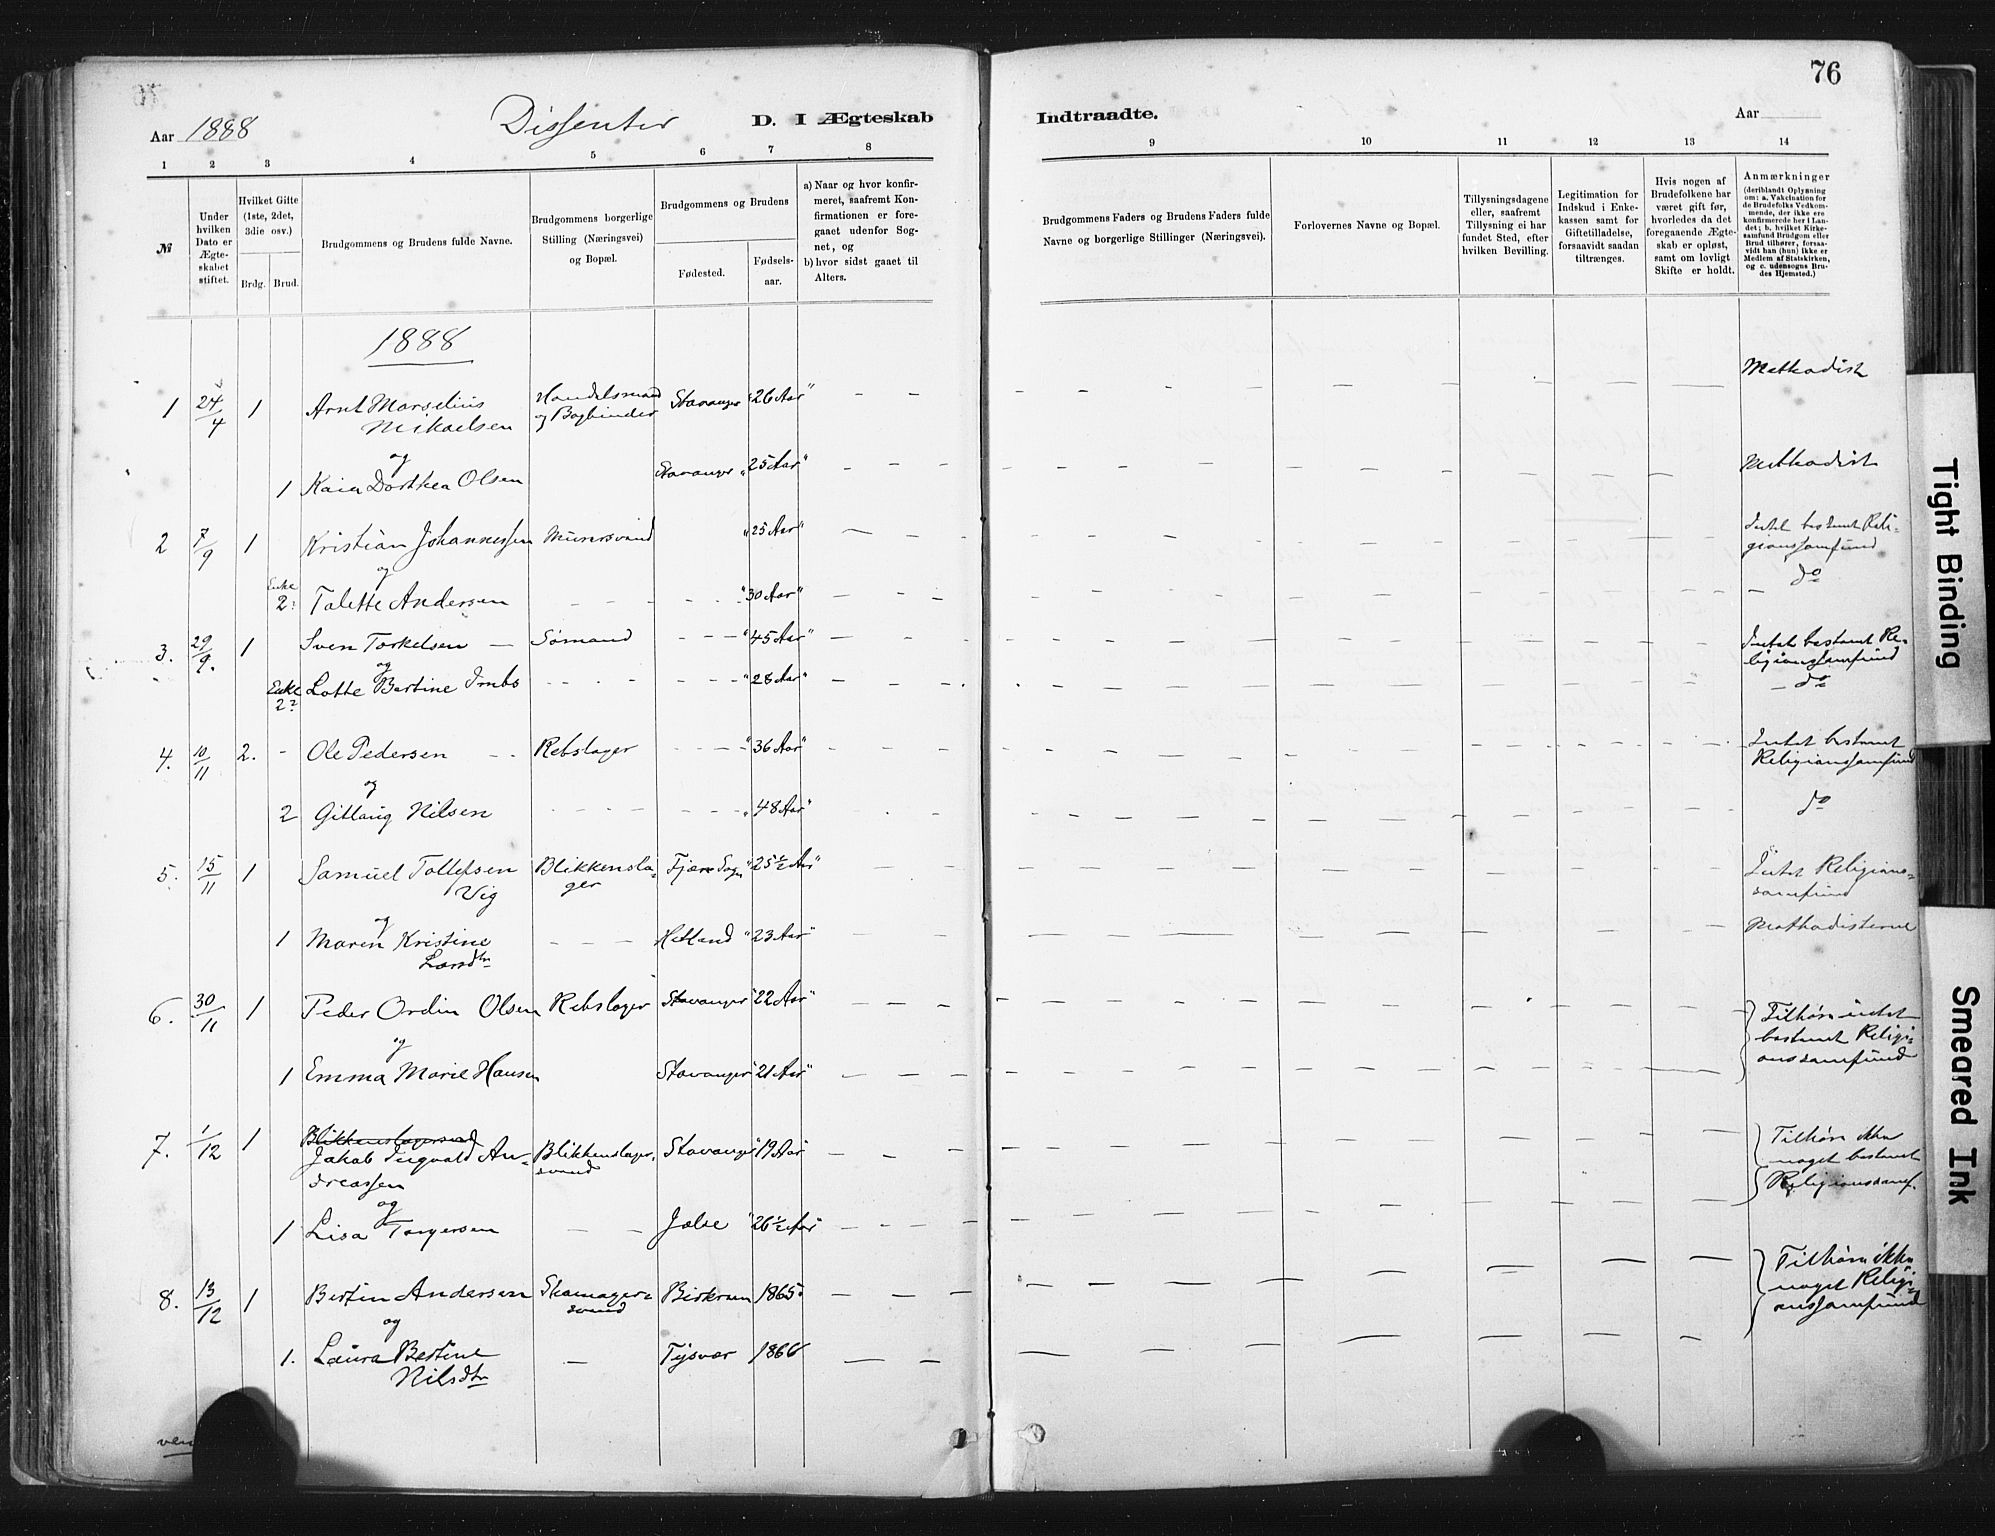 76
Aar 1888 Dissenter D. I Ægteskab Indtraadte. Aar
1 2 3 4 5 6 7 8 9 10 11 12 13 14
№
Under hvilken Dato er Ægteskabet stiftet.
Hvilket Gifte (1ste, 2det, 3die osv.)
Brdg. Brud.
Brudgommens og Brudens fulde Navne.
Brudgommens borgerlige Stilling (Næringsvei) og Bopæl.
Brudgommens og Brudens
Fødested. Fødselsaar.
a) Naar og hvor konfirmeret, saafremt Konfirmationen er foregaaet udenfor Sognet, og
b) hvor sidst gaaet til Alters.
Brudgommens Faders og Brudens Faders fulde Navne og borgerlige Stillinger (Næringsvei).
Forlovernes Navne og Bopæl.
Tillysningsdagene eller, saafremt Tillysning ei har fundet Sted, efter hvilken Bevilling.
Legitimation for Indskud i Enkekassen samt for Giftetilladelse, forsaavidt saadan tiltrænges.
Hvis nogen af Brudefolkene har været gift før, hvorledes da det foregaaende Ægteskab er opløst, samt om lovligt Skifte er holdt.
Anmærkninger
(deriblandt Oplysning om: a. Vakcination for de Brudefolks Vedkommende, der ikke ere konfirmerede her i Landet; b. hvilket Kirkesamfund Brudgom eller Brud tilhører, forsaavidt han (hun) ikke er Medlem af Statskirken, og c. udensogns Brudes Hjemsted.)
1888
1 24/4 1 Arnt Marselius Mikaelsen Handelsmand og Bogbinder Stavanger "26 Aar" Methodist
og
1 Kaia Dorthea Olsen Stavanger "25 Aar" Methodist
2 7/9 1 Kristian Johannessen Murersvend "25 Aar" Intet bestemt Religionssamfund
og
Enke 2. Talette Andersen "30 Aar" do
3. 29/9. 1 Sven Torkelsen Sømand "45 Aar" Intet bestemt Religionssamfund
og
Enke 2. Lotte Bertine "28 Aar" do
4. 10/11 2. Ole Pedersen Rebslager "36 Aar" Intet bestemt Religionssamfund
og
2 Gitlaug Nilsen "48 Aar" do
5. 15/11 1 Samuel Tollefsen Vig Blikkenslager Fjære Sogn "25½ Aar" Intet Religionssamfund
og
1 Maren Kristine Larsdtr Hetland "23 Aar" Methodisterne
6. 30/11 1 Peder Ordin Olsen Rebslager Stavanger "22 Aar" Tilhøre intet bestemt Religionssamfund
og
1 Emma Marie Hansen Stavanger "21 Aar"
7. 1/12 1 Blikkenslagersvend
Jakob Ingvald Andreassen Blikkenslagersvend Stavanger "19 Aar" Tilhøre ikke noget bestemt Religionssamf.
og
1 Lisa Torgersen Jelse "26½ Aar"
8. 13/12 1 Bertin Andersen Skomagersvend Birkrem 1865 Tilhøre ikke noget Religionssamfund
og
1. Laura Bertine Nilsdtr Tysvær 1866
Tight Binding
Smeared Ink